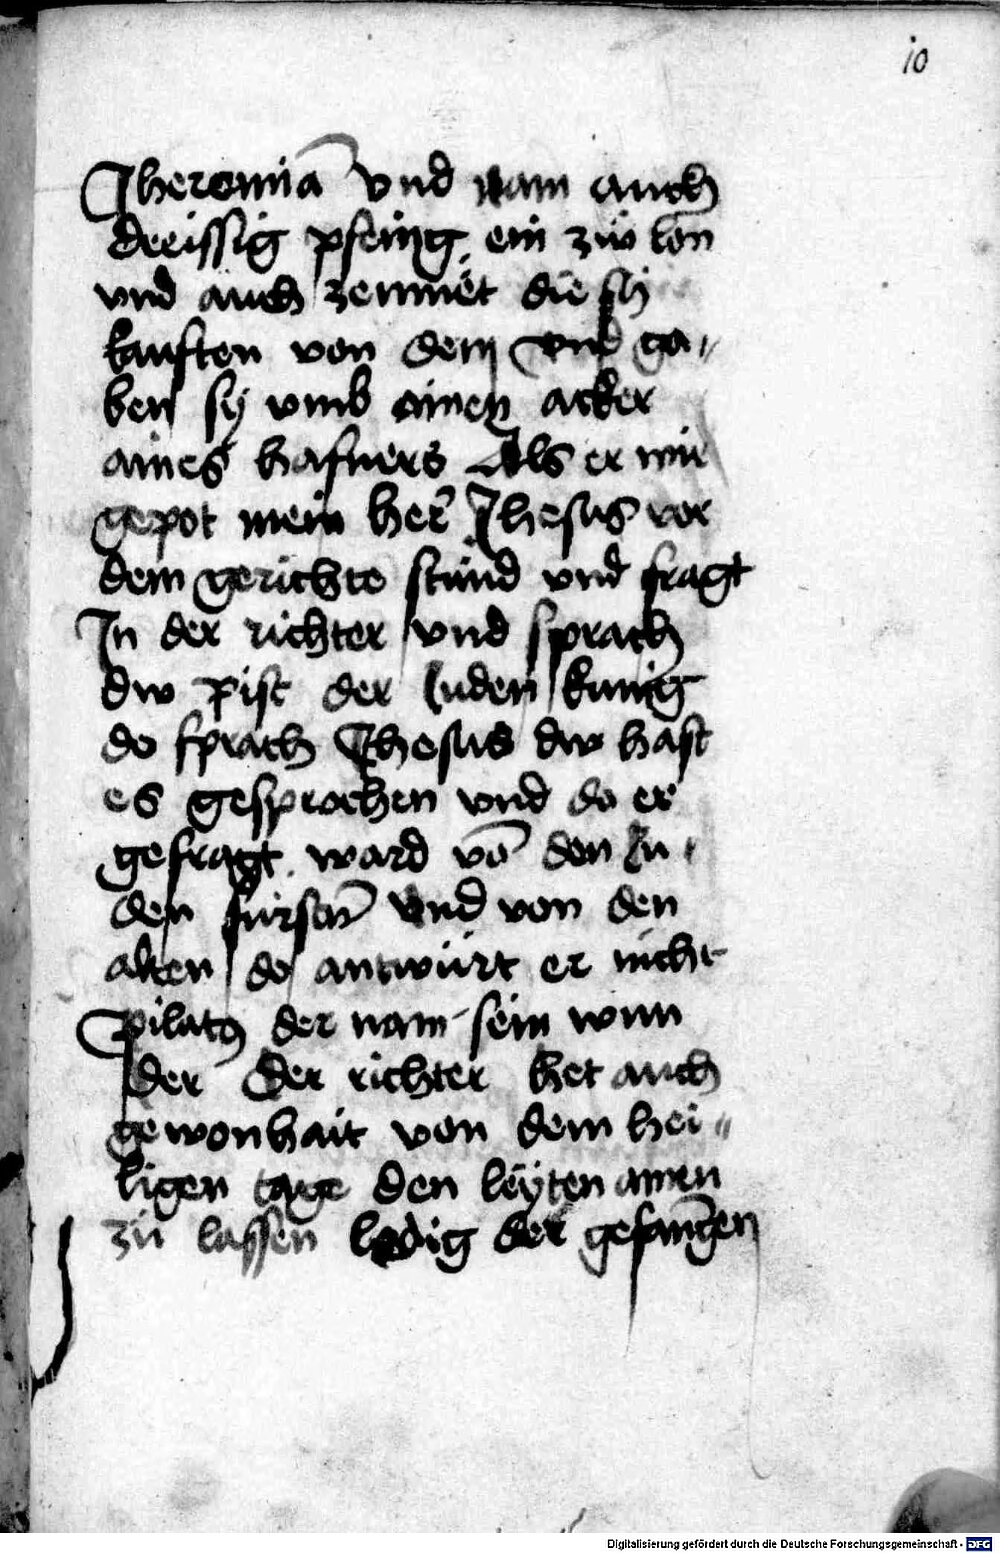 10
Jheromia vnd nam auch
dreissig pfening ein zw lon
vnd auch zennet die sy
kauften von dem vnd ga„
ben sy vmb ainen acker
aines hafners Als er mir
gepot mein her Jhesus vor
dem gerichte stund vnd fragt
In der richter vnd sprach
dw pist der Juden kunig
do sprach Jhesus dw hast
es gesprochen vnd do er
gefragt ward vō den Ju„
den fursten vnd von den
alten do antwurt er nicht
pilatus der nam sein wun
der Der richter het auch
gewonhait von dem hei„
ligen tage den leyten ainen
zu lassen ledig der gefangen
Digitalisierung gefördert durch die Deutsche Forschungsgemeinschaft - DFG